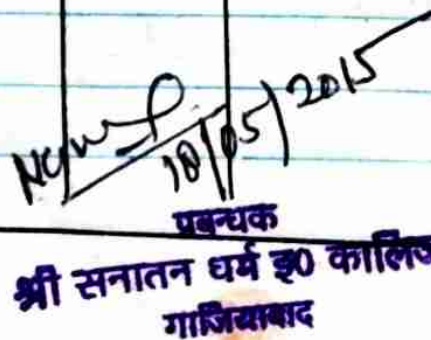 18/05/2015
प्रबन्धक
श्री सनातन धर्म इ० कालिज
गाजियाबाद